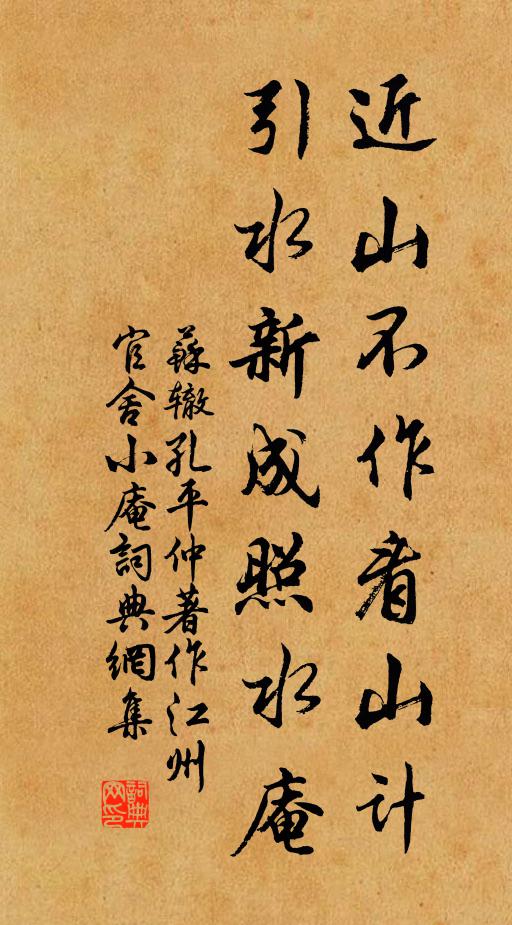 近山不作看山计
引水新成照水庵
蘇辙孔平仲著作江州
官舍小庵詞典網集
詞典
网印